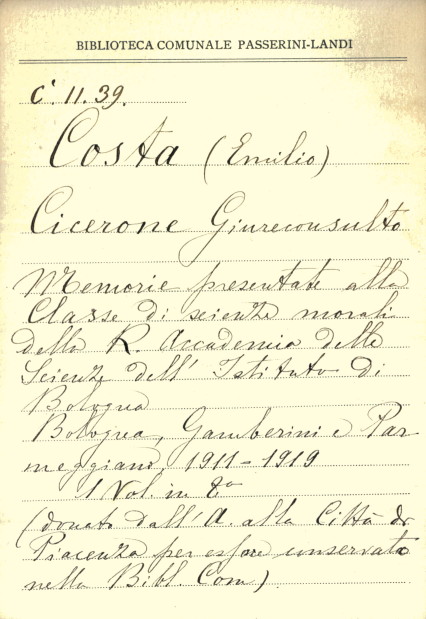 BIBLIOTECA COMUNALE PASSERINI-LANDI
C. 11. 39.
Costa (Emilio)
Cicerone Giureconsulto
Memorie presentate alla
Classe di scienze morali
della R. Accademia delle
Scienze dell' Istituto di
Bologna
Bologna, Gamberini e Par
meggiani, 1911-1919
1 Vol. in 8º
(donato dall'A. alla Città di
Piacenza per essere conservato
nella Bibl. Com)